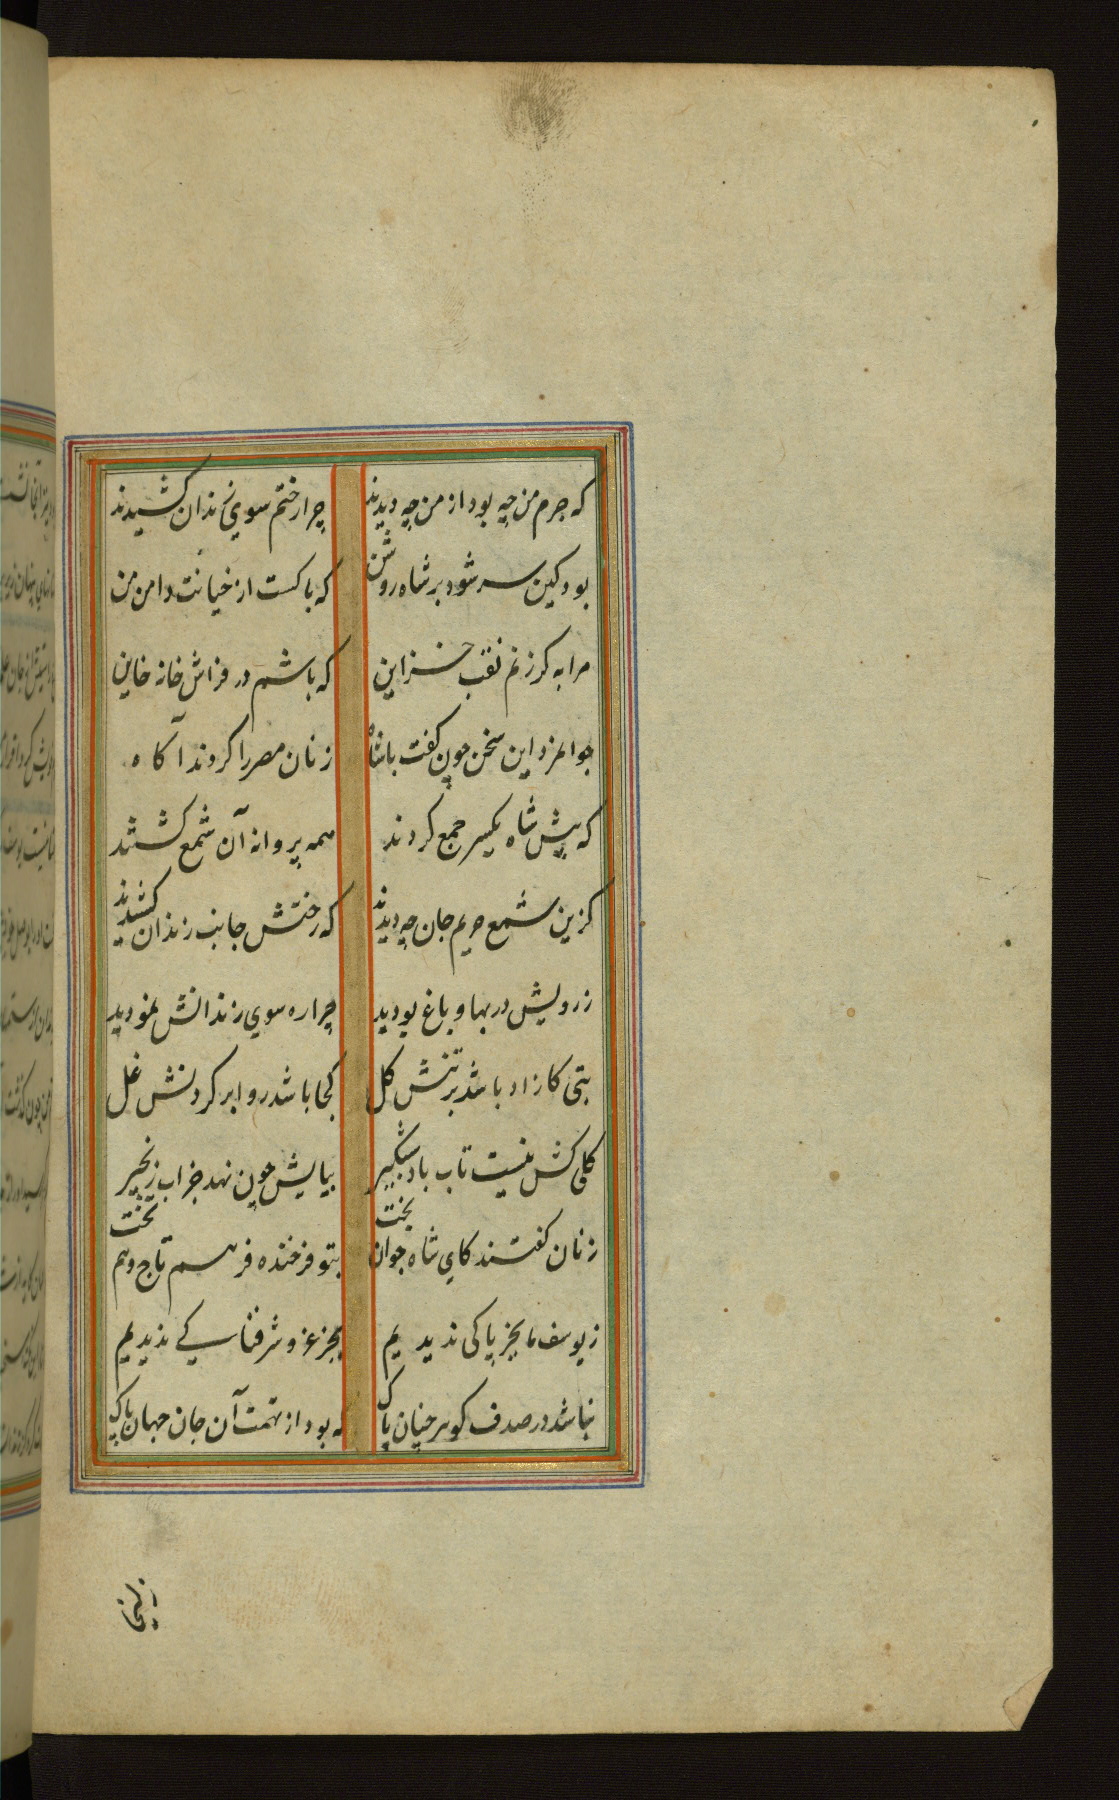 که جرم من چه بود از من چه دیدند چرا رختم سوی زندان کشیدند
بود کین سر شود بر شاه روشن که پاکست از خیانت دامن من
مرا به گر زنم نقب خزاین که باشم در فراش خانه خاین
جوانمرد این سخن چون کفت باشاه زنان مصر را کردند آکاه
که پیش شاه یکسر جمع کردند همه پروانه آن شمع کشتند
کزین شمع حریم جان چه دیدند که رختش جانب زندان کشیدند
ز رویش در بهار و باغ بودید چرا ره سوی زندانش نمودید
بتی کازاد باشد بر تنش کل کجا باشد روا بر کردنش غل
کلی کش نیست تاب باد شبکیر بپایش چون نهد جز آب زنجیر
زنان کفتند کای شاه جوان بخت بتو فرخنده فر هم تاج و هم تخت
ز یوسف ما بجز پاکی ندیدیم بجز عز و شرفناکی ندیدیم
نباشد در صدف کوهر چنان پاک که بود از تهمت آن جان جهان پاک
زلیخا